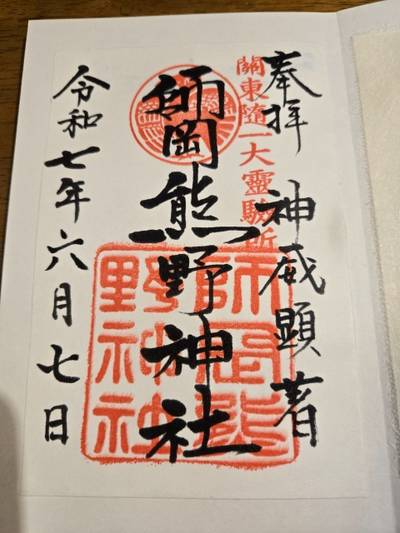 奉拝 神威顕著
關東随一大靈驗所
師岡熊野神社
師岡熊野神社
令和七年六月七日